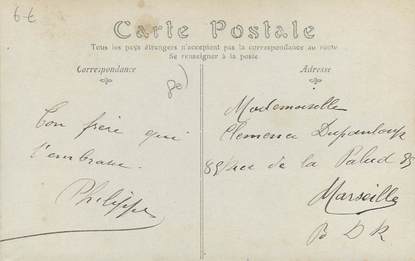 6 €
Carte Postale
Tous les pays étrangers n'acceptent pas la correspondance au recto
Se renseigner à la poste
Correspondance
Ton frère qui
t'embrasse
Philippe
Adresse
Mademoiselle
Clémence Dupanloup
89 rue de la Palud 89
Marseille
B D R